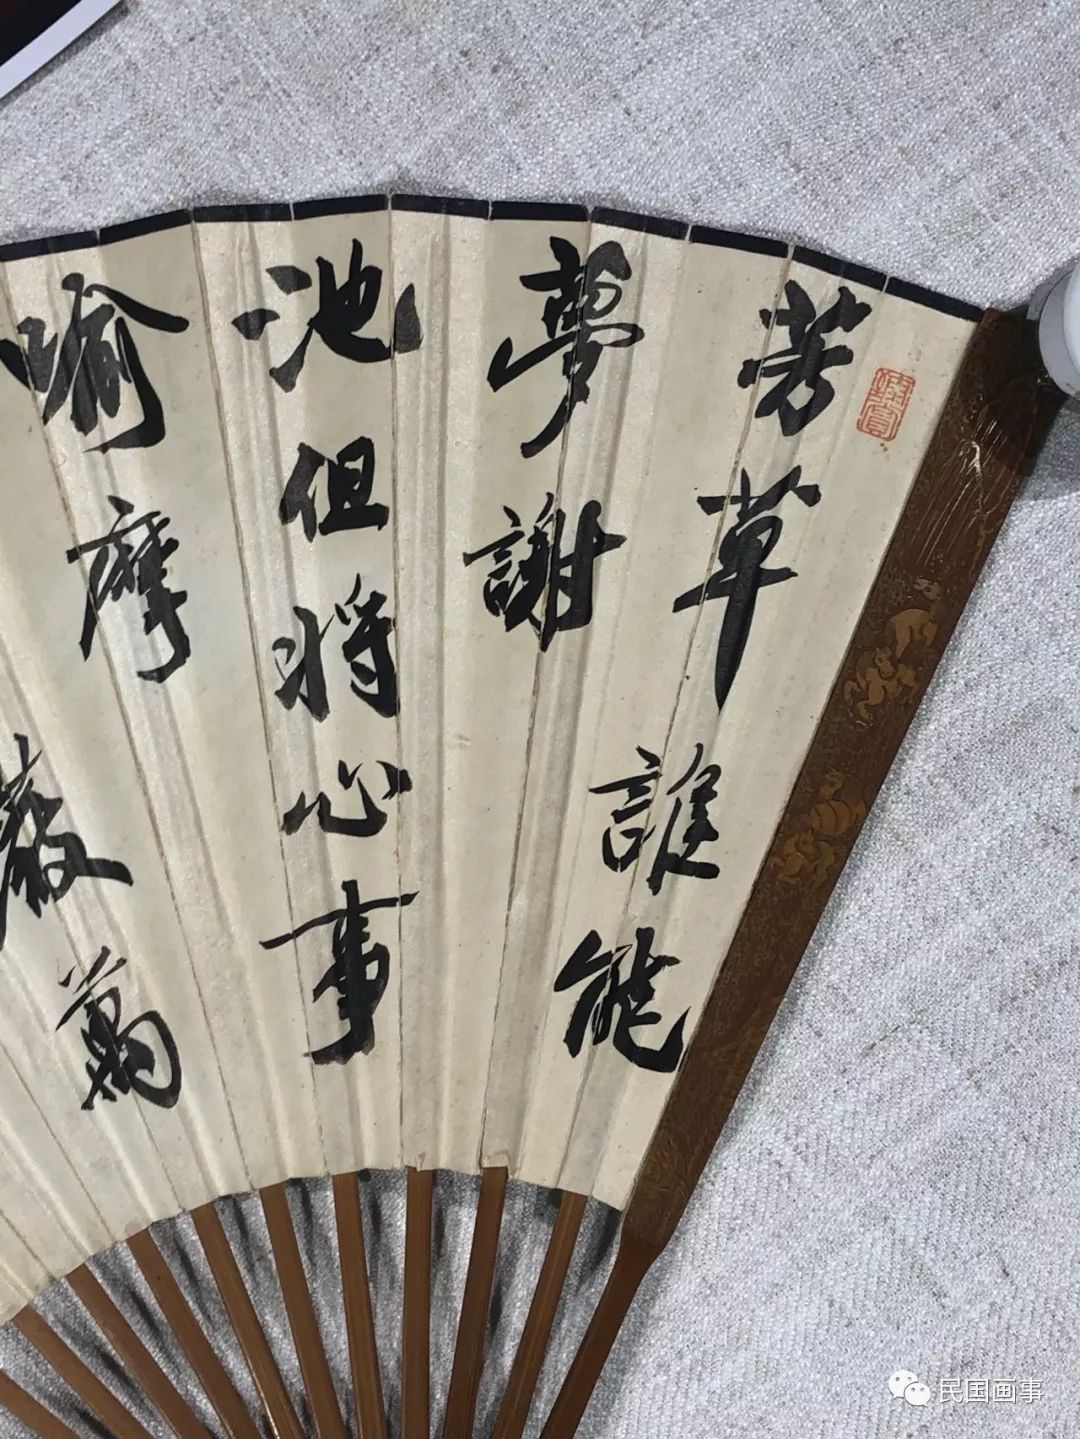 芳草誰能
夢謝
池但將心事
喻摩
萬
民国画事